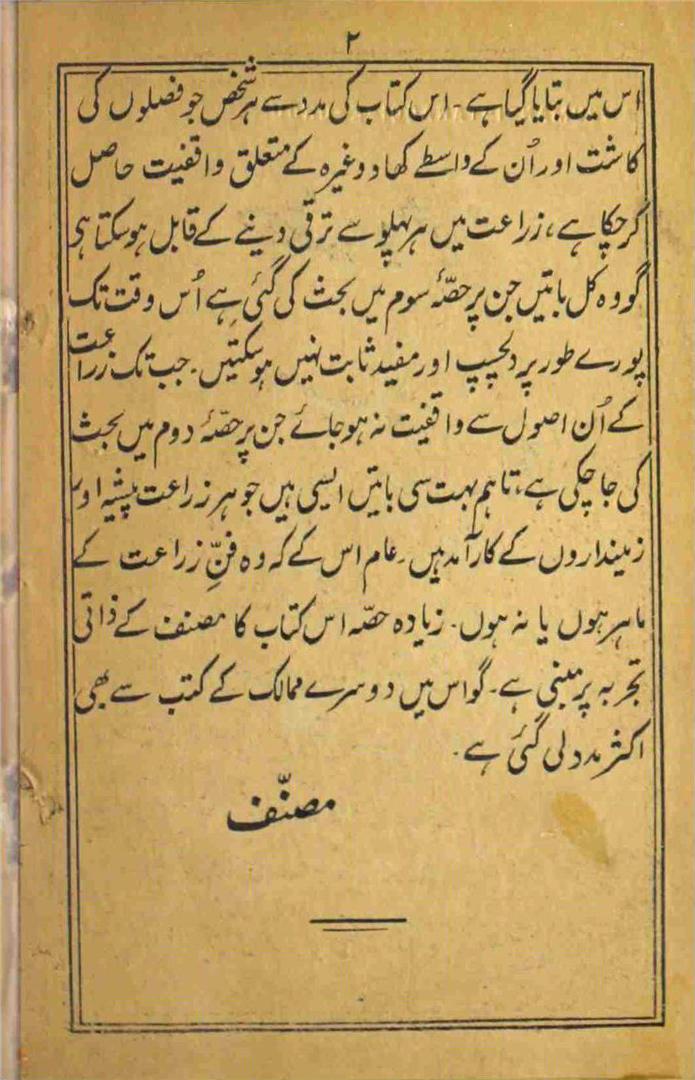 ۲
اس میں بتایا گیا ہے۔ اس کتاب کی مدد سے ہر شخص جو فصلوں کی
کاشت اور اُن کے واسطے کھاد وغیرہ کے متعلق واقفیت حاصل
کرچکا ہے، زراعت میں ہر پہلو سے ترقی دینے کے قابل ہوسکتا ہی
گو وہ کل باتیں جن پر حصّہٴ سوم میں بحث کی گئی ہے اُس وقت تک
پورے طور پر دلچسپ اور مفید ثابت نہیں ہوسکتیں۔ جب تک زراعت
کے اُن اصول سے واقفیت نہ ہوجائے جن پر حصّہٴ دوم میں بحث
کی جاچکی ہے، تاہم بہت سی باتیں ایسی ہیں جو ہر زراعت پیشہ اور
زمینداروں کے کارآمد ہیں۔ عام اس کے کہ وہ فنِّ زراعت کے
ماہر ہوں یا نہ ہوں۔ زیادہ حصّہ اس کتاب کا مصنف کے ذاتی
تجربہ پر مبنی ہے۔ گو اس میں دوسرے ممالک کے کتب سے بھی
اکثر مدد لی گئی ہے۔
مصنّف